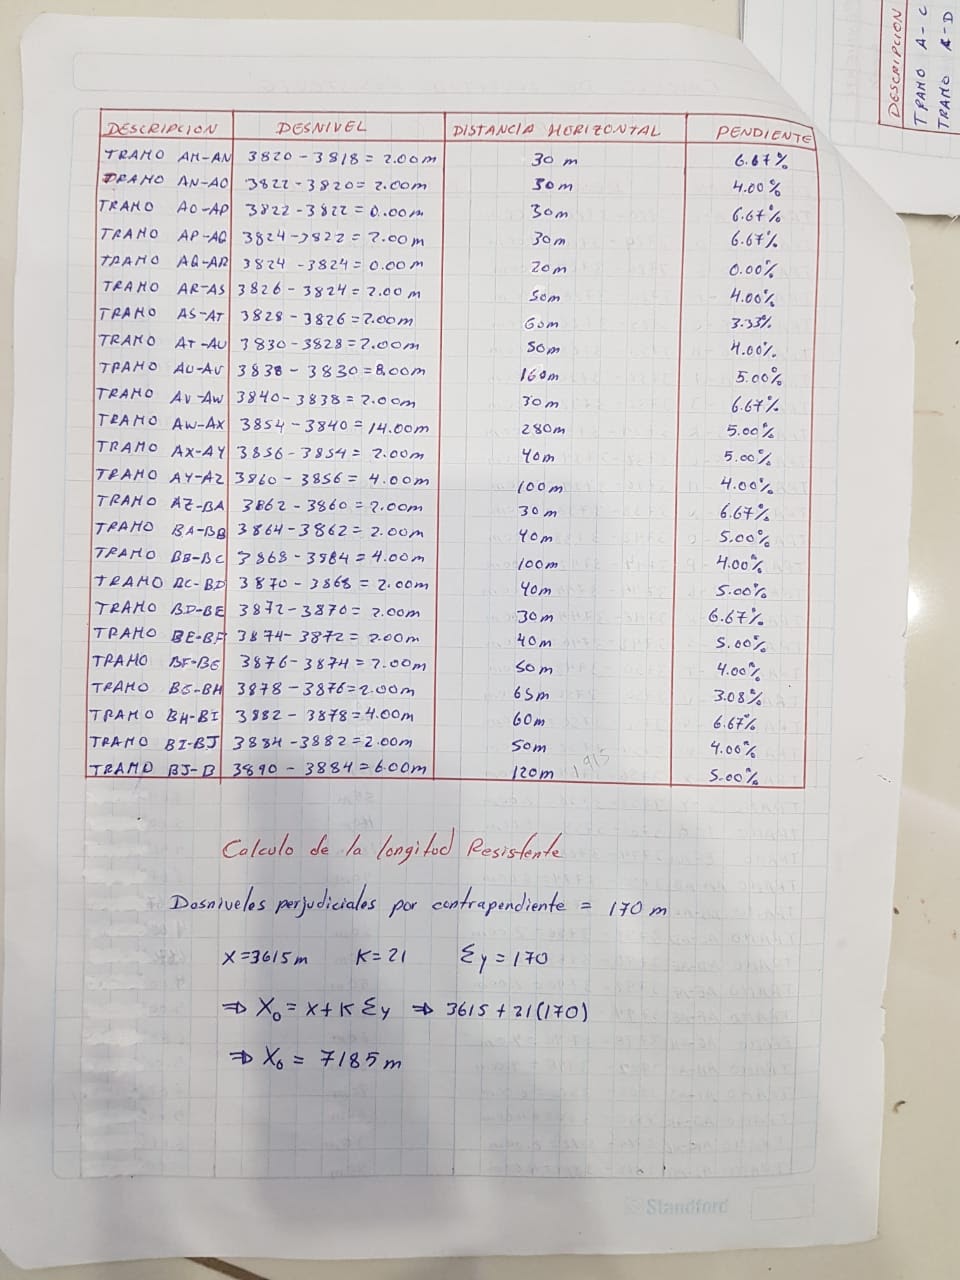 DESCRIPCION
TRAMO A-C
TRAMO A-D
DESCRIPCION DESNIVEL DISTANCIA HORIZONTAL PENDIENTE
TRAMO AM-AN 3820-3818=2.00m 30m 6.67%
TRAMO AN-AO 3822-3820=2.00m 30m 4.00%
TRAMO AO-AP 3822-3822=0.00m 30m 6.67%
TRAMO AP-AQ 3824-3822=2.00m 30m 6.67%
TRAMO AQ-AR 3824-3824=0.00m 20m 0.00%
TRAMO AR-AS 3826-3824=2.00m 50m 4.00%
TRAMO AS-AT 3828-3826=2.00m 60m 3.33%
TRAMO AT-AU 3830-3828=2.00m 50m 4.00%
TRAMO AU-AV 3838-3830=8.00m 160m 5.00%
TRAMO AV-AW 3840-3838=2.00m 30m 6.67%
TRAMO AW-AX 3854-3840=14.00m 280m 5.00%
TRAMO AX-AY 3856-3854=2.00m 40m 5.00%
TRAMO AY-AZ 3860-3856=4.00m 100m 4.00%
TRAMO AZ-BA 3862-3860=2.00m 30m 6.67%
TRAMO BA-BB 3864-3862=2.00m 40m 5.00%
TRAMO BB-BC 3868-3984=4.00m 100m 4.00%
TRAMO BC-BD 3870-3868=2.00m 40m 5.00%
TRAMO BD-BE 3872-3870=2.00m 30m 6.67%
TRAMO BE-BF 3874-3872=2.00m 40m 5.00%
TRAMO BF-BG 3876-3874=2.00m 50m 4.00%
TRAMO BG-BH 3878-3876=2.00m 65m 3.08%
TRAMO BH-BI 3882-3878=4.00m 60m 6.67%
TRAMO BI-BJ 3884-3882=2.00m 50m 4.00%
TRAMO BJ-B 3890-3884=6.00m 120m 1,915 5.00%
Calculo de la longitud Resistente
Desniveles perjudiciales por contrapendiente = 170 m
X=3615m K=21 Σy=170
⇒ X₀ = X+KΣy ⇒ 3615+21(170)
⇒ X₀ = 7185 m
Standford